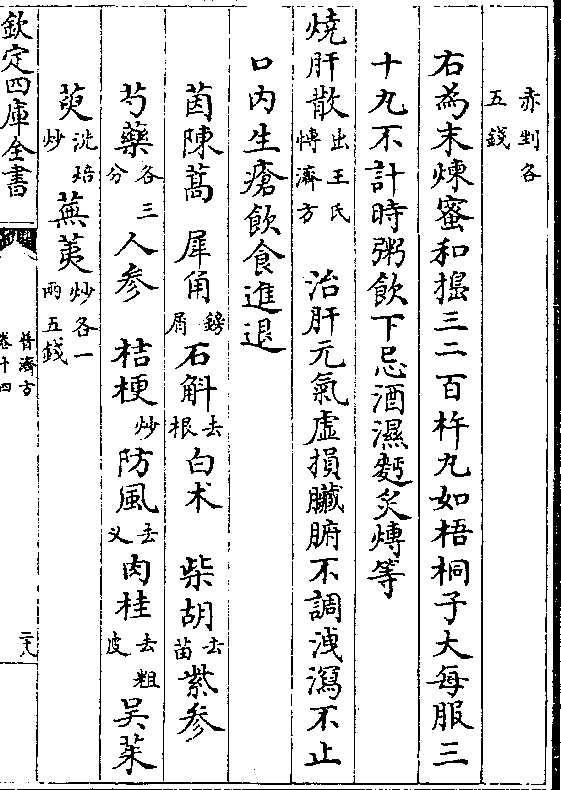 赤剉各五錢
右為末煉蜜和搗三二百杵丸如梧桐子大每服三
十丸不計時粥飲下忌酒濕麪炙煿等
燒肝散出王氏博濟方 治肝元氣虛損臟腑不調洩瀉不止
口內生瘡飲食進退
茵陳蒿 犀角鎊屑 石斛去根 白朮 柴胡去苗 紫參
芍藥各三分 人參 桔梗炒 防風去义 肉桂去粗皮 吳茱
萸洗焙炒 蕪荑炒各一兩五錢
欽定四庫全書
普濟方
卷十四